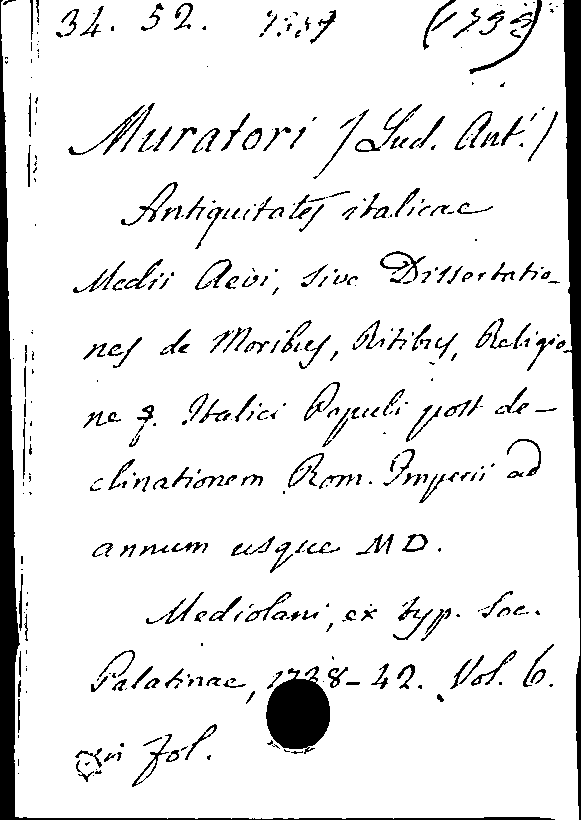 34. 52.
Muratori /Lud. Ant./
Antiquitates italicae
Medii Aevi, sive Dissertatio-
nes de Moribus, Ritibus, Religio-
ne &. Italici Populi post de-
clinationem Rom. Imperii ad
annum usque MD.
Mediolani, ex typ. Soc.
Palatinae, 1738-42. Vol. 6.
in fol.